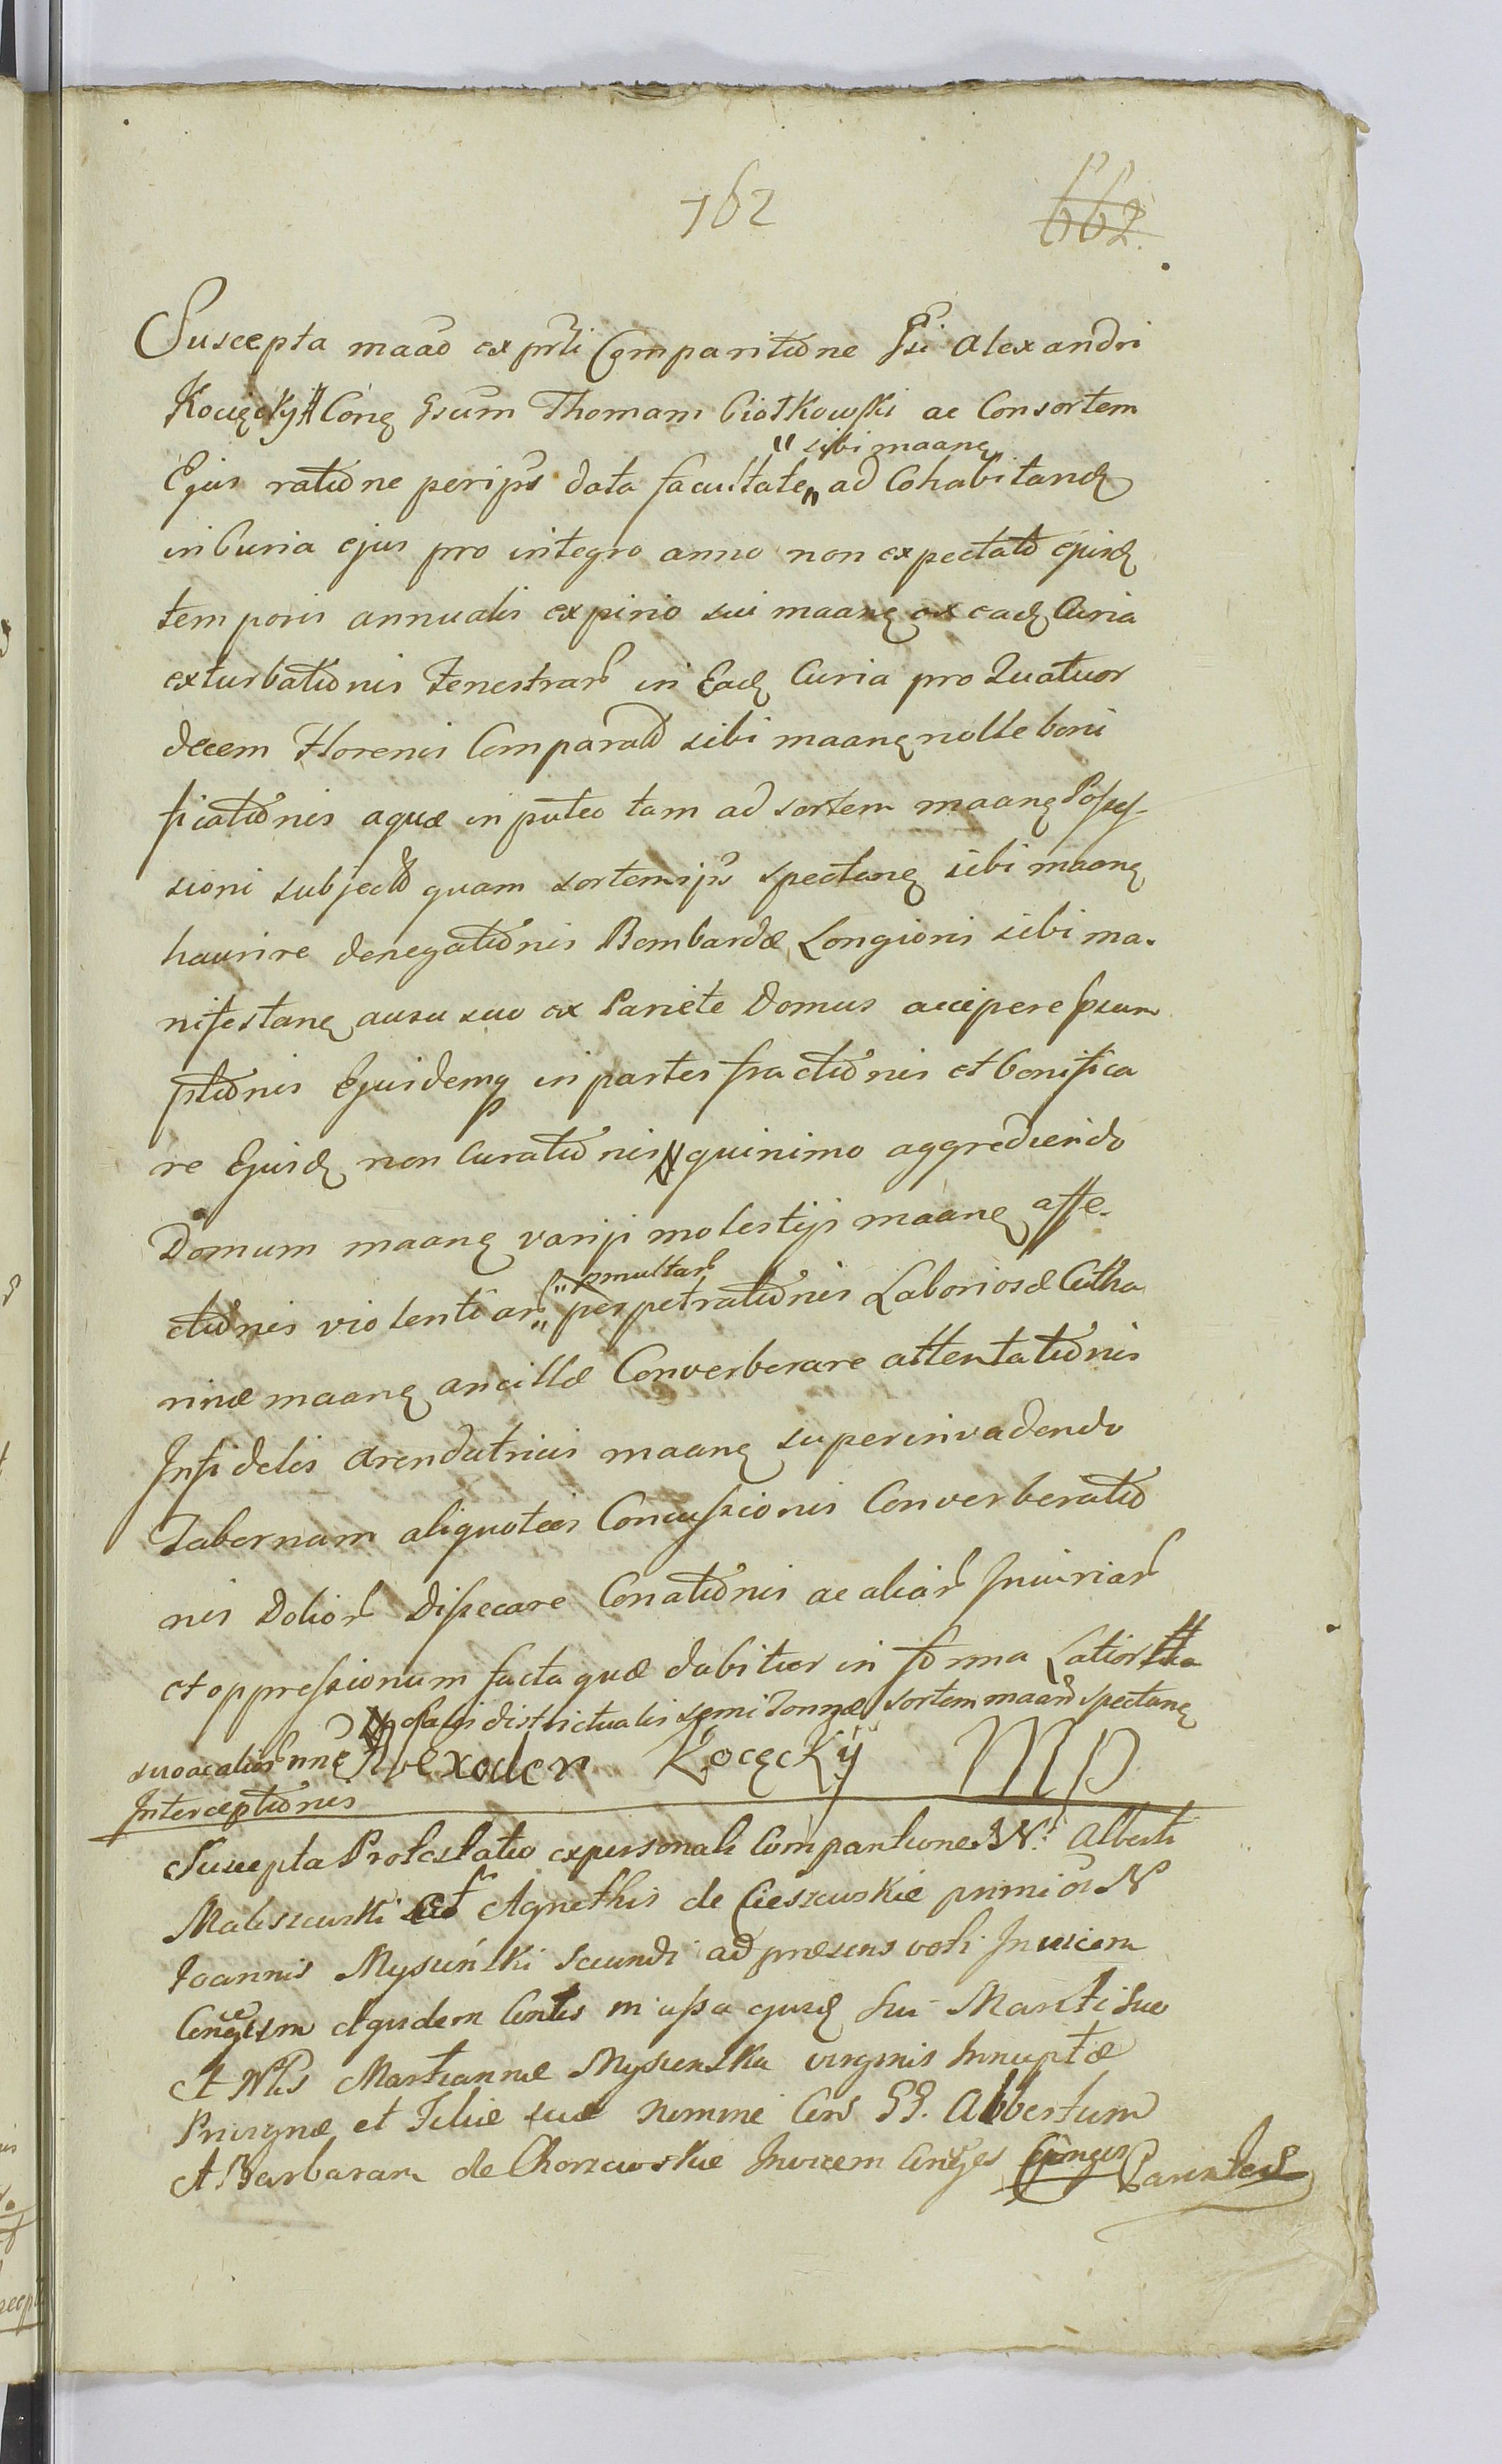 762 662.
Suscepta maão ex prli Comparitione Gsi Alexandri
Kocięcky # Conę Gsum Thomam Ciotkowski ac Consortem
" sibi maanę
Ejus ratione per ips data facultate " ad Cohabitandę
in Curia ejus pro integro anno non expectato ejusdę
temporis annualis expirio sui maanę ex eadę Curia
exturbationis Fenestrar in Eadę Curia pro Quatuor
decem Florenis Comparato sibi maanę nolle boni
ficationis aquæ in puteo tam ad sortem maanę Posses-
sioni subjecto quam sortem ips spectanę sibi maanę
haurire denegationis Bombardæ Longioris sibi ma-
nifestanę ausu suo ex Pariete Domus accipere præsum
ptionis Ejusdemq in partes fractionis et bonifica
re Ejusdę non Curationis # quinimo aggrediendo
Domum maanę varijs molestijs maanę affe-
" pmultar
ctionis violentiar " perpetrationis Laboriosæ Catha
rinæ maanę ancillæ Converberare attentationis
Infidelis Arendatricis maanę superinvadendo
Tabernam aliquoties Concussionis Converberatio
nis Dolior Dissecare Conationis ac aliar Iniuriar
et oppressionum facta quæ dabitur in forma Latiori
# salis districtualis semi Tonnæ sortem maand spectanę
suo ac alior nnę Alexander Kocęckÿ Mp
Interceptionis
Suscepta Protestatio ex personali Comparitione N. Alberti
Maliszewski et Agnethis de Cieszewskie primi os N
Joannis Mysuński Secundi ad præsens voti Invicem
Congum Equidem Contis in assa ejusdę sui Mariti sue
et Nlis Mariannæ Mysienska virginis Innuptæ
Privignæ et Filiæ suæ nomine Cons GG. Albertum
et Barbaram de Chorzewskie Invicem Conges Conges Parentes